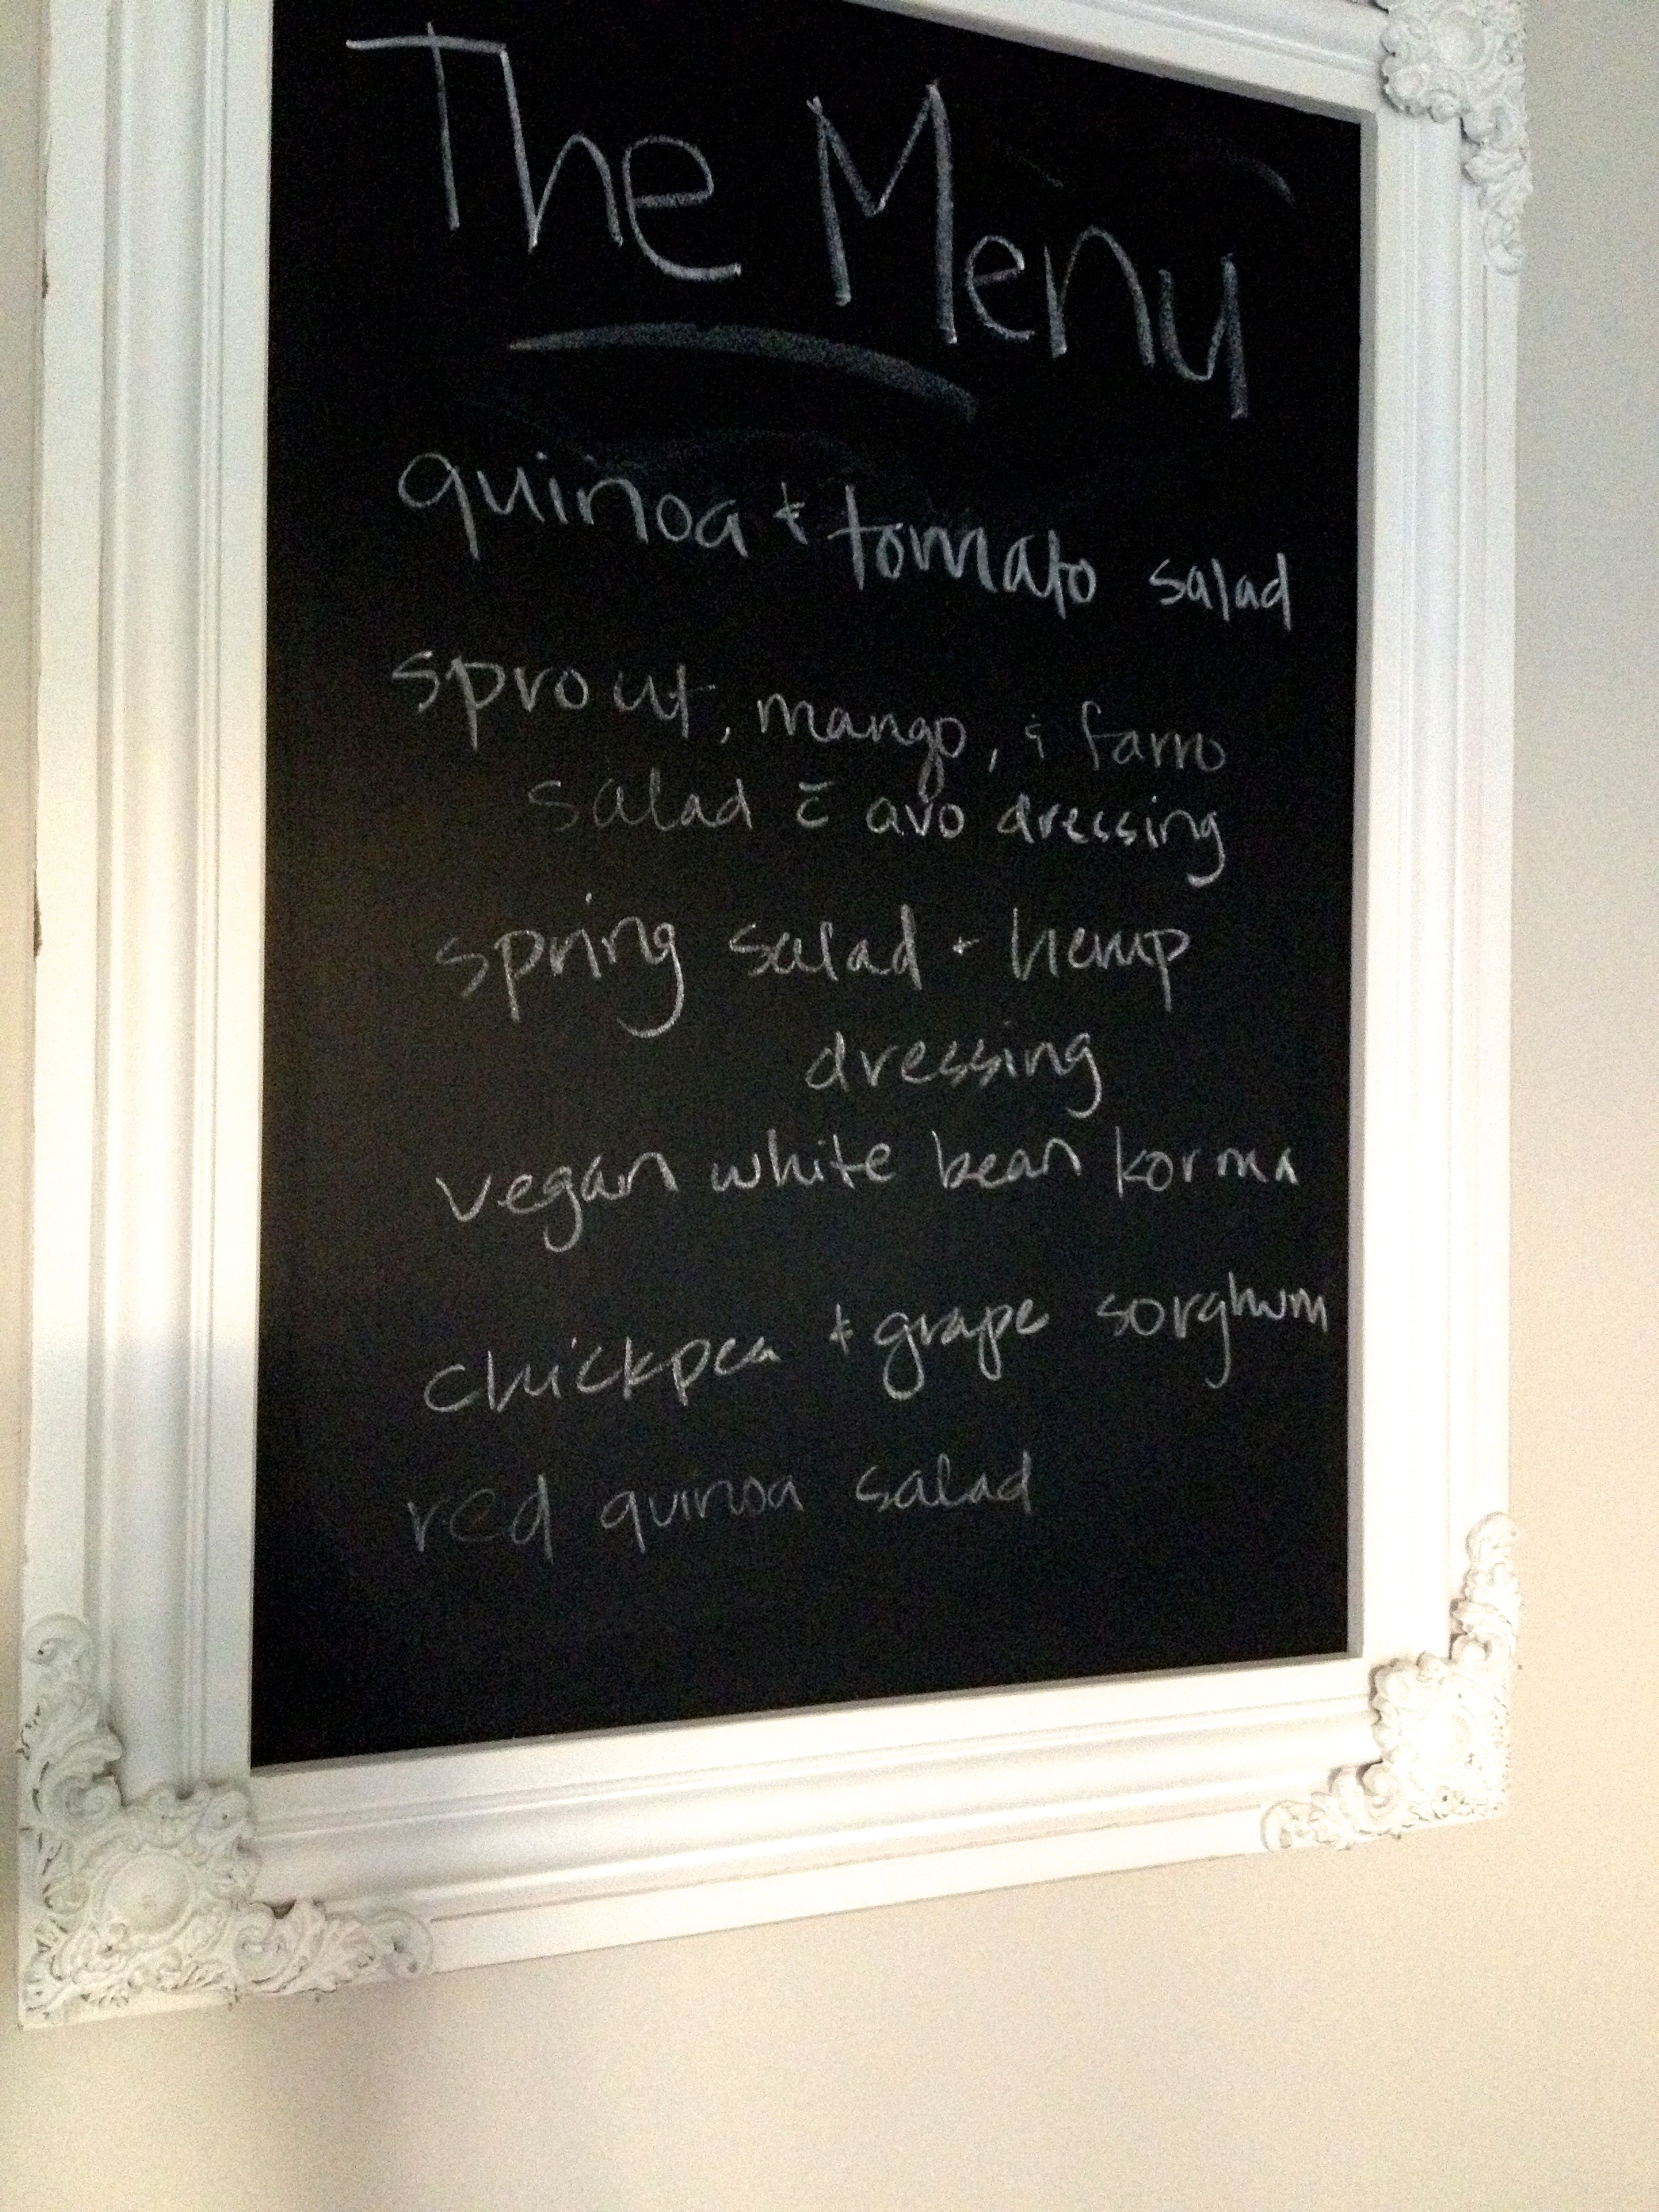 The Menu
quinoa & tomato salad
sprout, mango, & farro
salad c̄ avo dressing
spring salad + hemp
dressing
vegan white bean korma
chickpea + grape sorghum
red quinoa salad